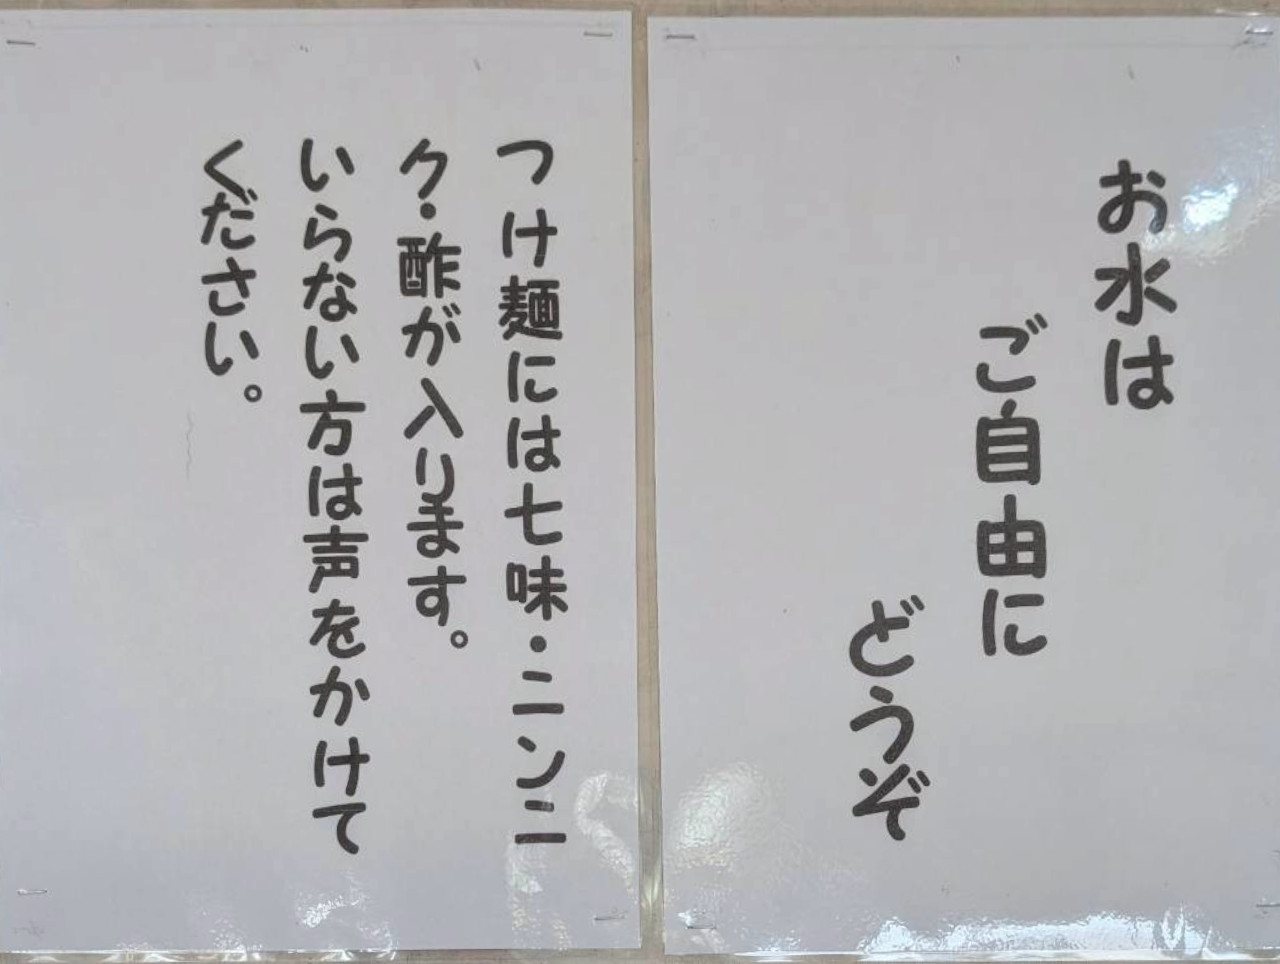 お水は
ご自由に
どうぞ
つけ麺には七味・ニンニ
ク・酢が入ります。
いらない方は声をかけて
ください。